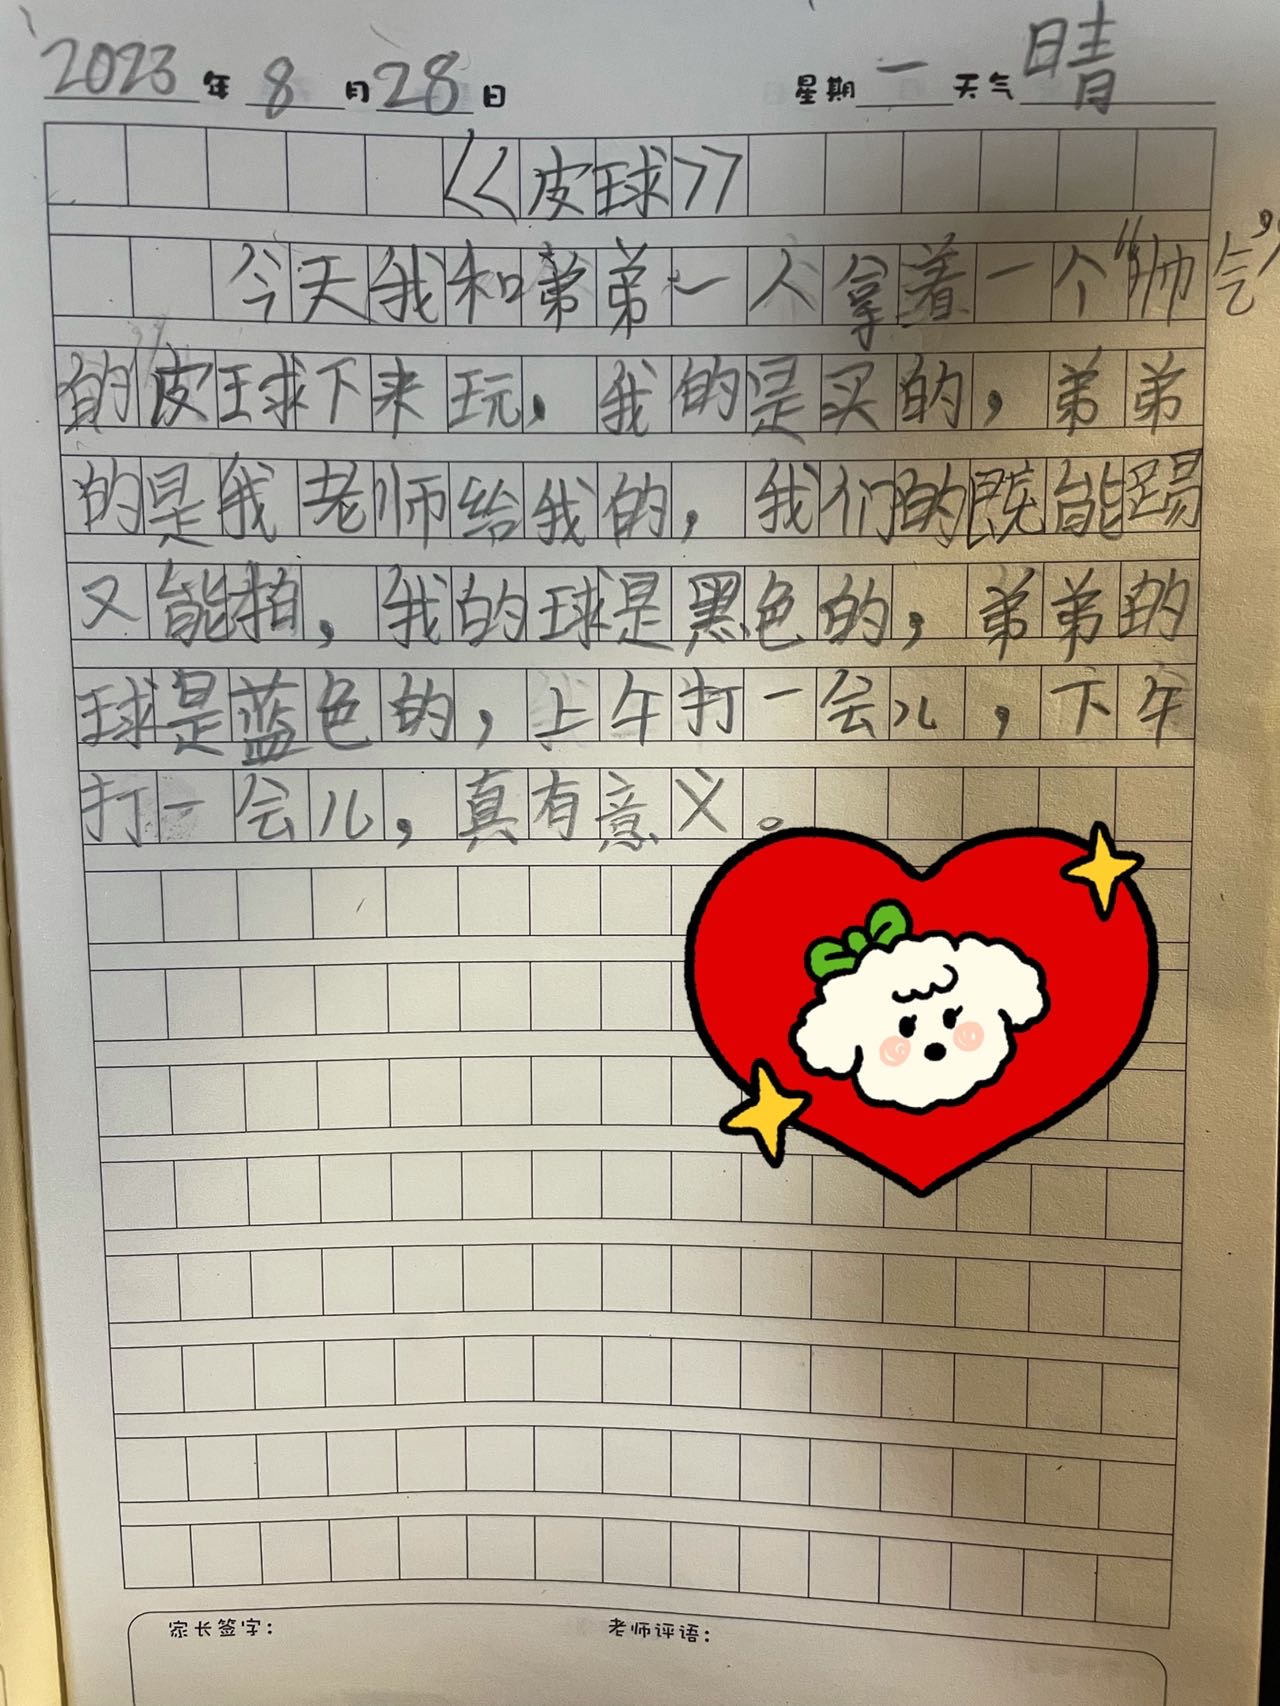 2023年8月28日 星期一 天气晴
《皮球》
今天我和弟弟一人拿着一个“帅气”
的皮球下来玩，我的是买的，弟弟
的是我老师给我的，我们的既能踢
又能拍，我的球是黑色的，弟弟的
球是蓝色的，上午打一会儿，下午
打一会儿，真有意义。
家长签字： 老师评语：